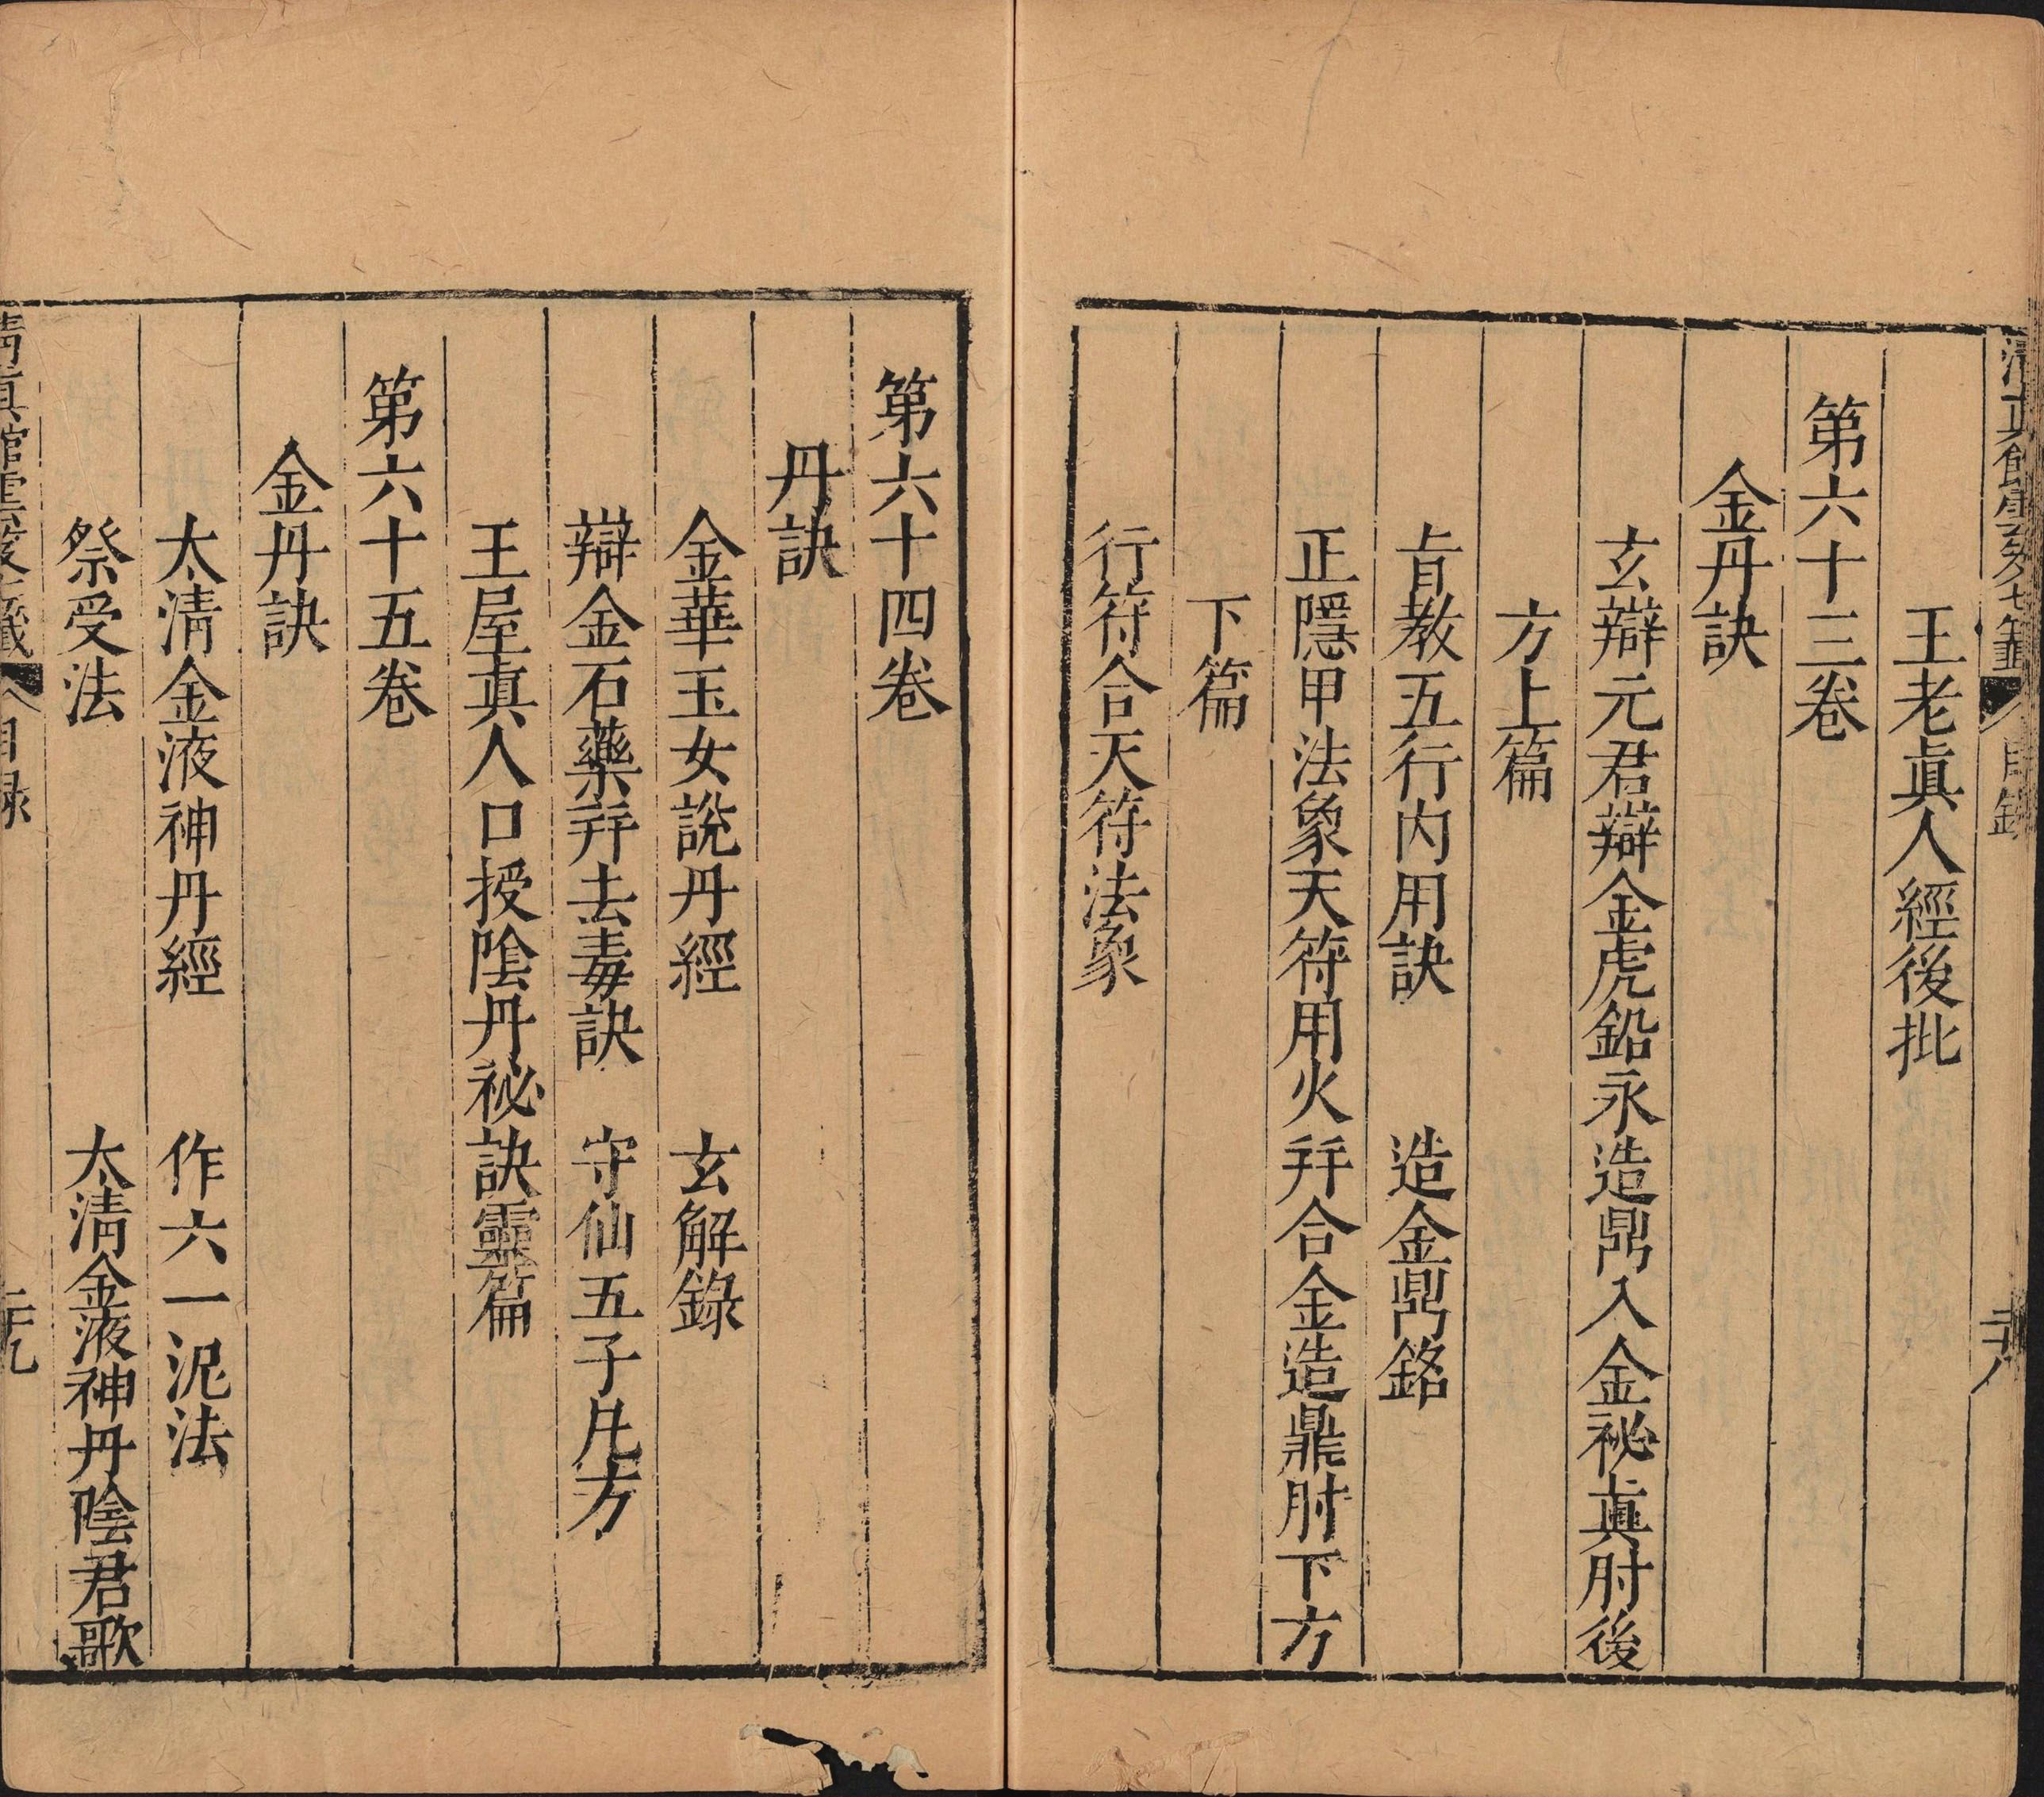 清真館雲笈七籤 目錄 二十八
王老眞人經後批
第六十三卷
金丹訣
玄辯元君辯金虎鉛永造鼎入金祕眞肘後
方上篇
㫖教五行内用訣 造金鼎銘
正隱甲法象天符用火幷合金造鼎肘下方
下篇
行符合天符法象
第六十四卷
丹訣
金華玉女說丹經 玄解錄
辯金石藥幷去毒訣 守仙五子𠃬方
王屋眞人口授陰丹祕訣靈篇
第六十五卷
金丹訣
太清金液神丹經 作六一泥法
祭受法 太清金液神丹陰君歌
清真館雲笈七籤 目録 二十九